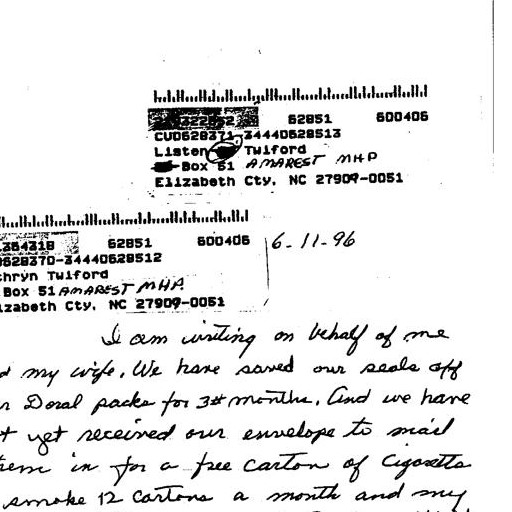 62851 600406
CU0628371-34440628513
Listen Twiford
Box 51 AMAREST MHP
Elizabeth Cty, NC 27909-0051
364318 62851 600406
0628370-34440628512
thryn Twiford
Box 51 AMAREST MHP
izabeth Cty, NC 27909-0051
6-11-96
I am writing on behalf of me
d my wife. We have saved our seals off
r Doral packs for 3# months. And we have
t yet received our envelope to mail
em in for a free carton of Cigaretts
smoke 12 cartons a month and my